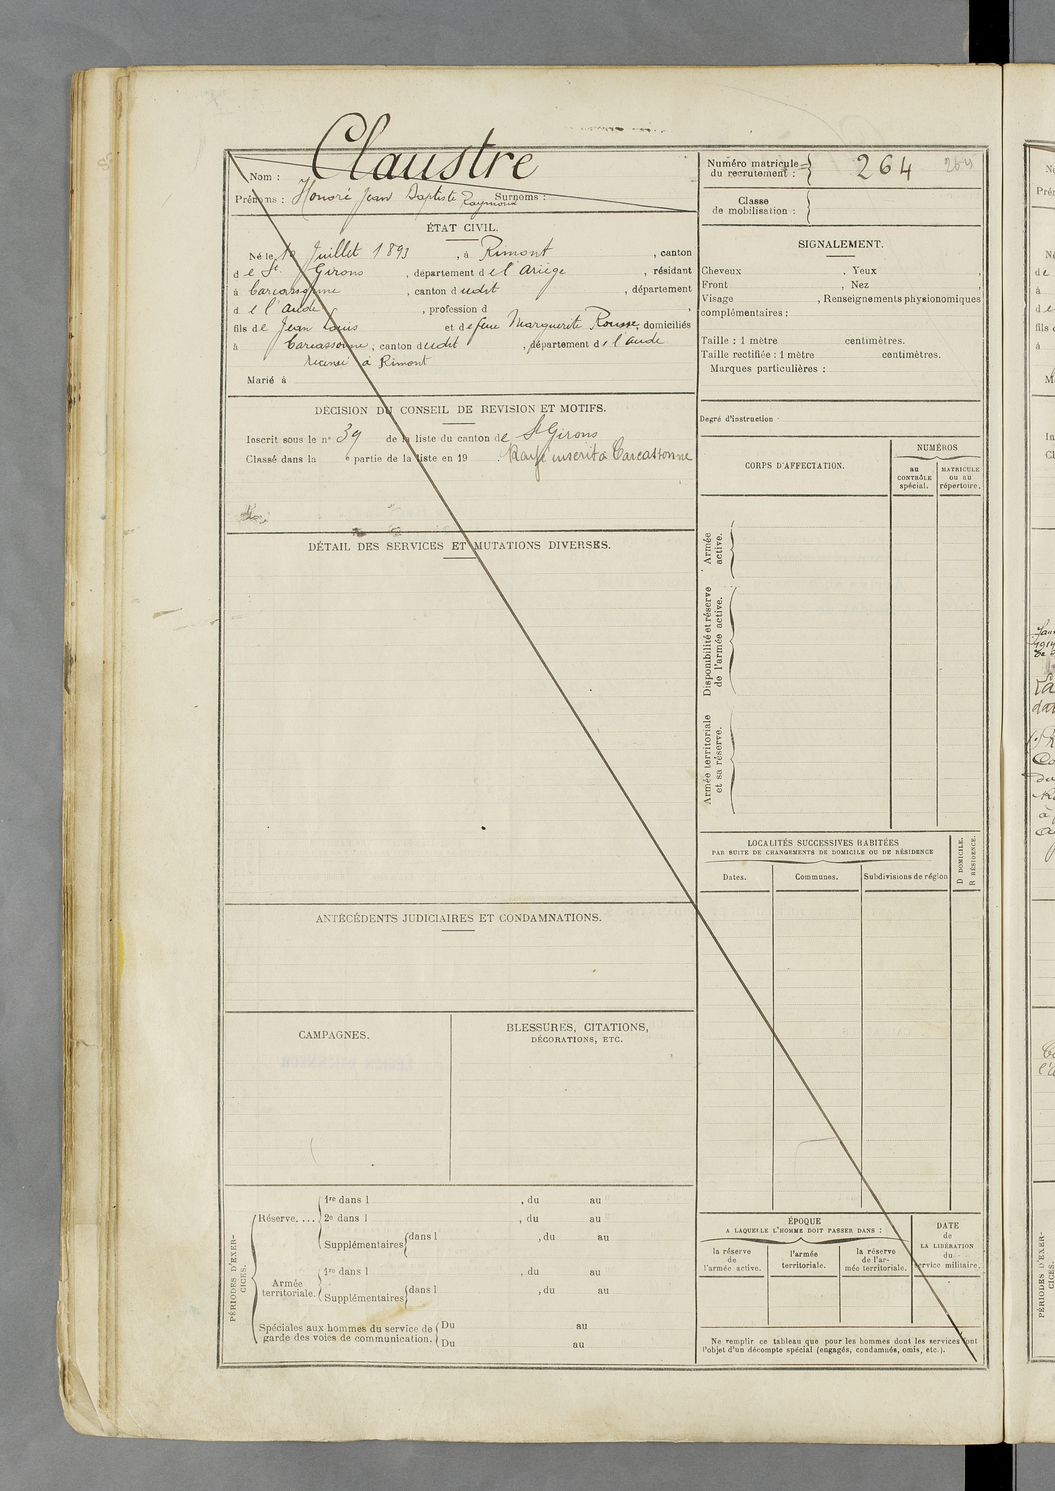 Claustre
Nom :
Prénoms : Honoré Jean Baptiste Raymond Surnoms :
ÉTAT CIVIL.
Né le 10 Juillet 1893, à Rimont, canton
de St. Girons, département de l'Ariège, résidant
à Carcassonne, canton dudit, département
de l'Aude, profession d
fils de Jean Louis et de feue Marguerite Rousse, domiciliés
à Carcassonne, canton dudit, département de l'aude
recensé à Rimont
Marié à
DÉCISION DU CONSEIL DE REVISION ET MOTIFS.
Inscrit sous le n° 39 de la liste du canton de St Girons
Classé dans la e partie de la liste en 19 . Rayé inscrit à Carcassonne
DÉTAIL DES SERVICES ET MUTATIONS DIVERSES.
ANTÉCÉDENTS JUDICIAIRES ET CONDAMNATIONS.
CAMPAGNES.
BLESSURES, CITATIONS,
DÉCORATIONS, ETC.
PÉRIODES D'EXER-
CICES.
Réserve....
1re dans l , du au
2e dans l , du au
Supplémentaires dans l , du au
Armée
territoriale.
1re dans l , du au
Supplémentaires dans l , du au
Spéciales aux hommes du service de
garde des voies de communication.
Du au
Du au
Numéro matricule
du recrutement : 264
264
Classe
de mobilisation :
SIGNALEMENT.
Cheveux , Yeux ,
Front , Nez
Visage , Renseignements physionomiques
complémentaires :
Taille : 1 mètre centimètres.
Taille rectifiée : 1 mètre centimètres.
Marques particulières :
Degré d'instruction
CORPS D'AFFECTATION.
NUMÉROS
au
CONTRÔLE
spécial.
MATRICULE
ou au
répertoire.
Armée
active.
Disponibilité et réserve
de l'armée active.
Armée territoriale
et sa réserve.
LOCALITÉS SUCCESSIVES HABITÉES
PAR SUITE DE CHANGEMENTS DE DOMICILE OU DE RÉSIDENCE
D DOMICILE.
R RÉSIDENCE.
Dates.
Communes.
Subdivisions de région
ÉPOQUE
A LAQUELLE L'HOMME DOIT PASSER DANS :
la réserve
de
l'armée active.
l'armée
territoriale.
la réserve
de l'ar-
mée territoriale.
DATE
de
LA LIBÉRATION
du
service militaire.
Ne remplir ce tableau que pour les hommes dont les services font
l'objet d'un décompte spécial (engagés, condamnés, omis, etc.).
PÉRIODES D'EXER-
CICES.